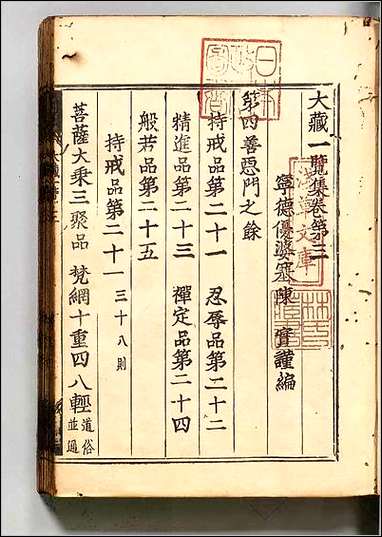 大藏一覽集卷第三
寧德優婆塞陳 實謹編
第四善惡門之餘
持戒品第二十一 忍辱品第二十二
精進品第二十三 禪定品第二十四
般若品第二十五
持戒品第二十一 三十八則
菩薩大乘三聚品 梵網十重四八輕 道俗並通
日本政圖書
淺草文庫
林氏藏書